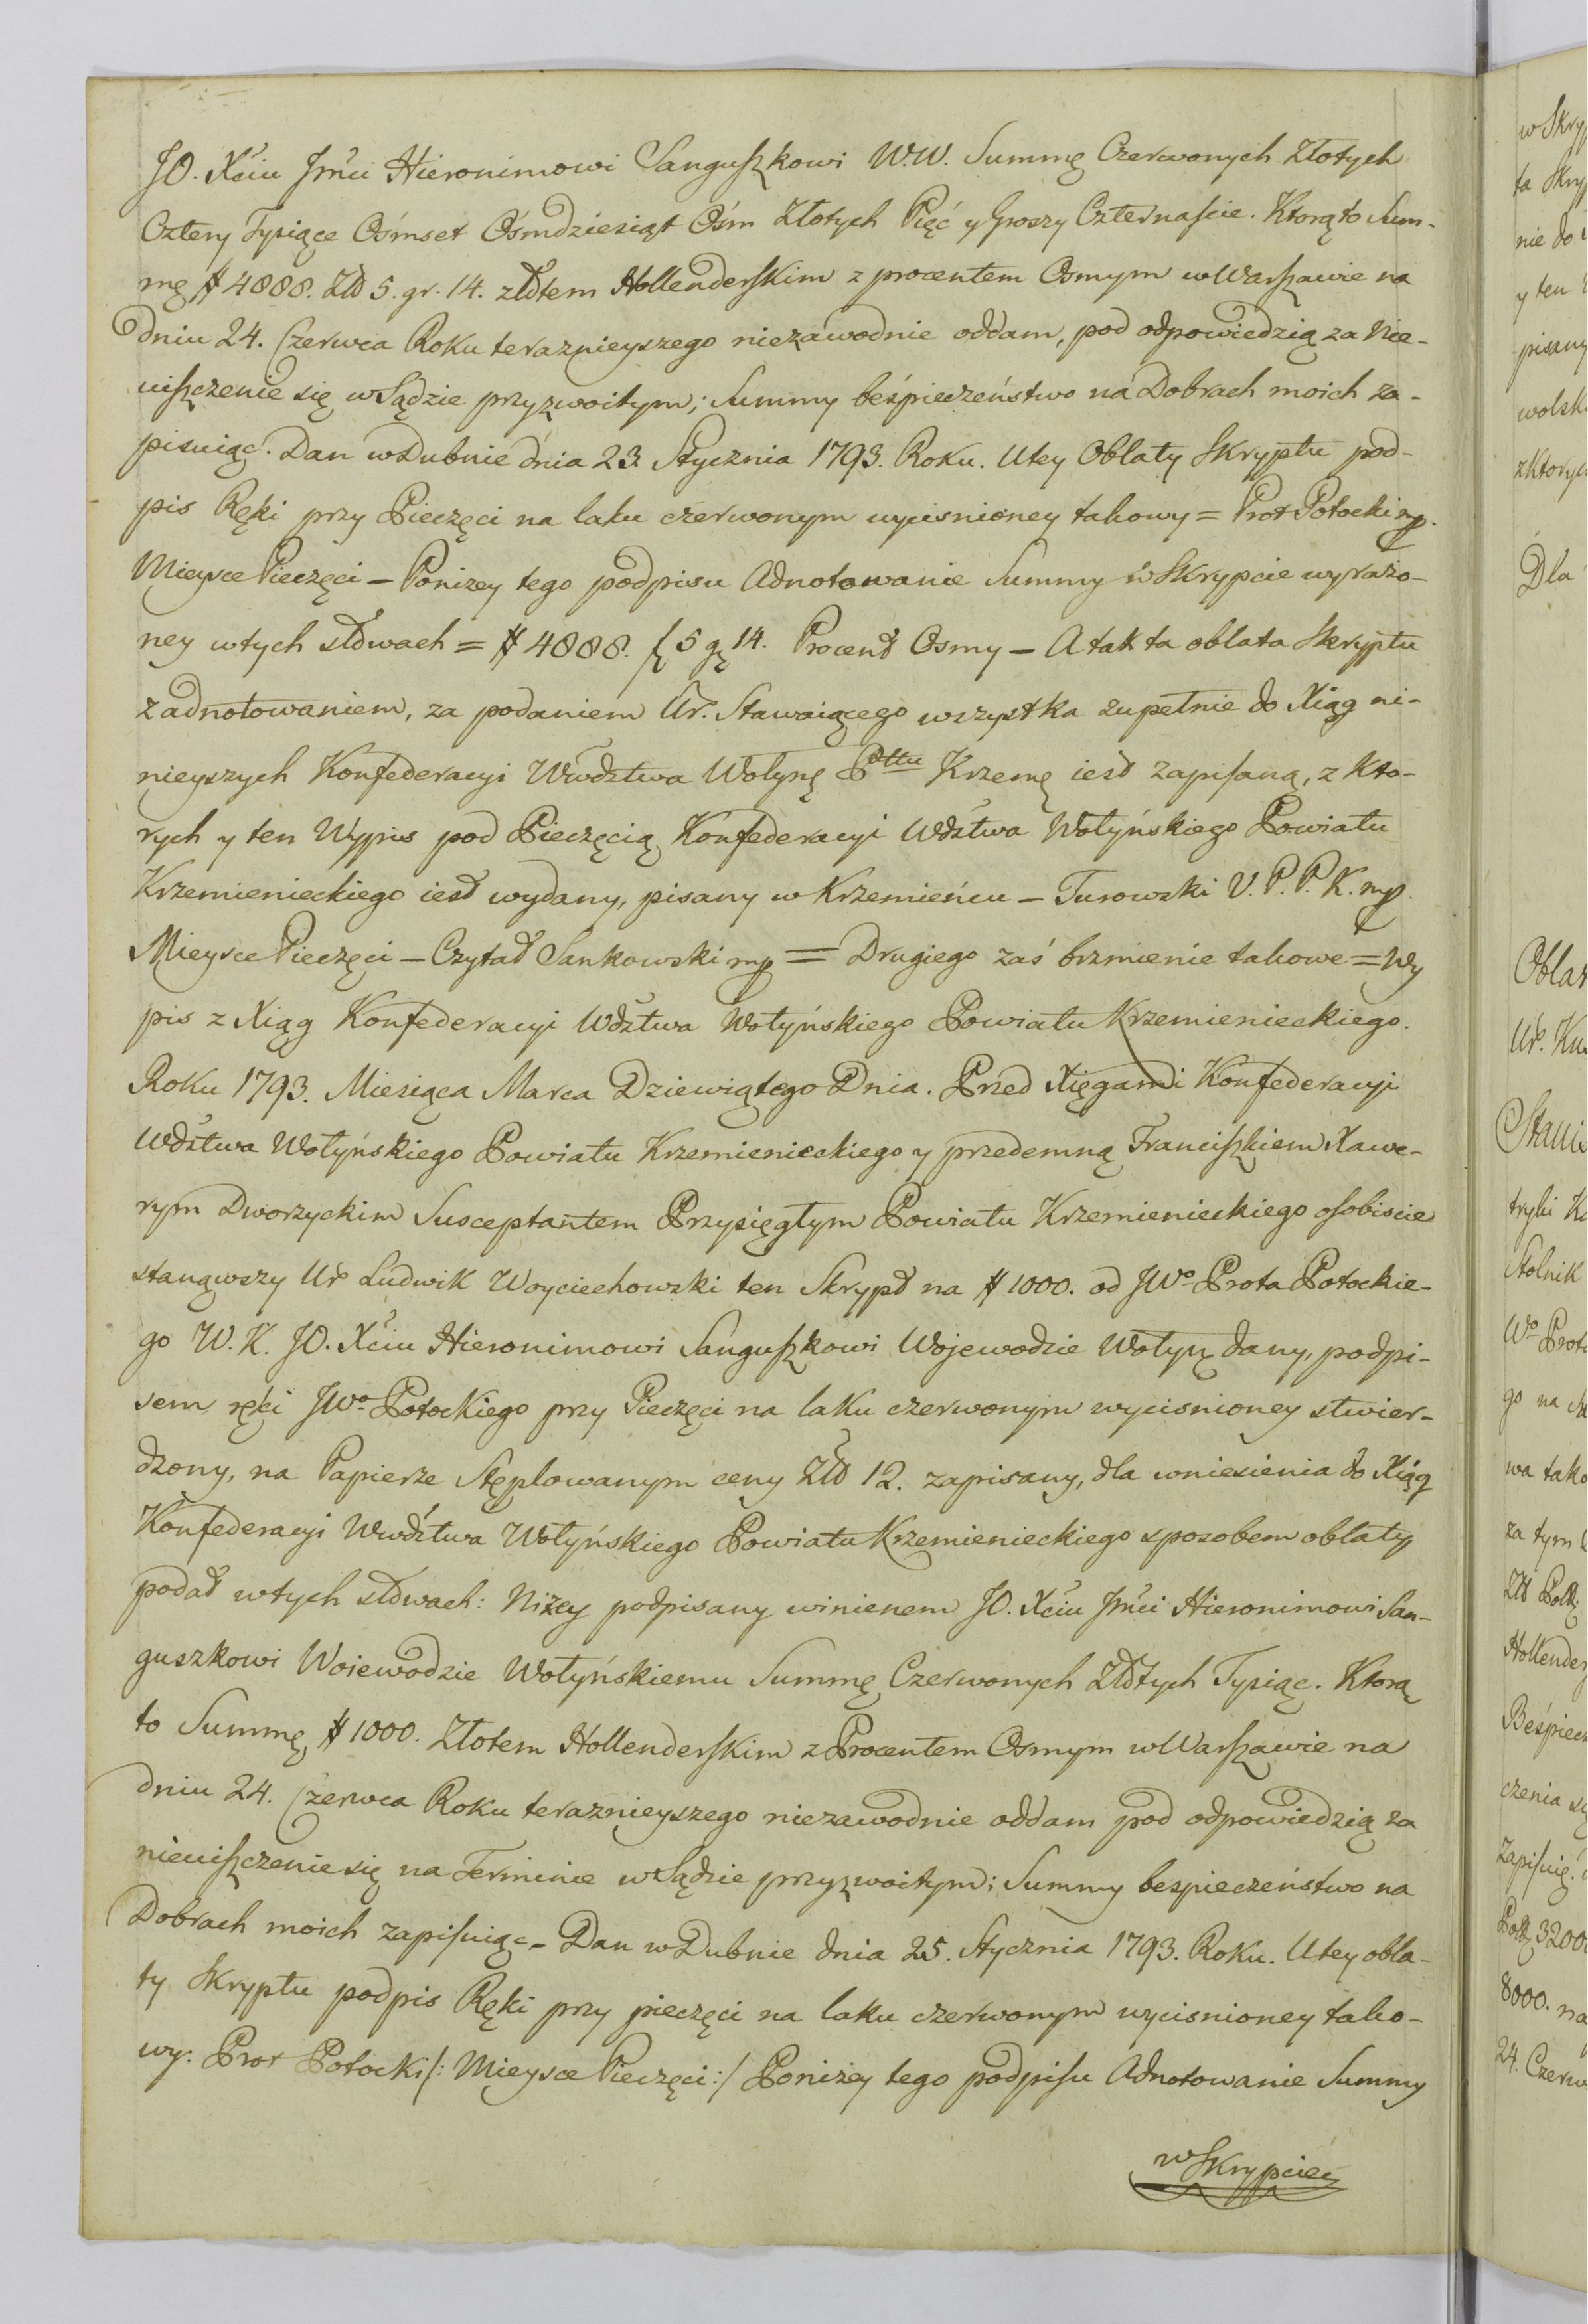 JO. Xciu Jmci Hieronimowi Sanguszkowi W.W. Summę Czerwonych Złotych
Cztery Tysiące Ośmset Ośmdziesiąt Ośm Złotych Pięć y Groszy Czternaście. Ktorą to Sum-
mę # 4888. Złł 5. gr. 14. złotem Hollenderskim z procentem Osmym w Warszawie na
dniu 24. Czerwca Roku teraznieyszego niezawodnie oddam, pod odpowiedzią za Nie-
uiszczenie się w Sądzie przyzwoitym; Summy beśpieczeństwo na Dobrach moich za-
pisuiąc. Dan w Dubnie dnia 23. Stycznia 1793. Roku. U tey Oblaty Skryptu pod-
pis Ręki przy Pieczęci na laku czerwonym wycisnioney takowy = Prot Potocki mp.
Mieysce Pieczęci – Poniżey tego podpisu Adnotowanie Summy w Skrypcie wyrażo-
ney w tych słowach = # 4888. f 5 g 14. Procent Osmy – A tak ta oblata Skryptu
z adnotowaniem, za podaniem Ur. Stawaiącego wszystka zupełnie do Xiąg ni-
nieyszych Konfederacyi Wwdztwa Wołynę Pttu Krzemę iest zapisaną, z kto-
rych y ten Wypis pod Pieczęcią Konfederacyi Wdztwa Wołyńskiego Powiatu
Krzemienieckiego iest wydany, pisany w Krzemieńcu – Turowski V. P. P. K. mp.
Mieysce Pieczęci – Czytał Sankowski mp = Drugiego zaś brzmienie takowe = Wy
pis z Xiąg Konfederacyi Wdztwa Wołyńskiego Powiatu Krzemienieckiego.
Roku 1793. Miesiąca Marca Dziewiątego Dnia. Przed Xięgami Konfederacyi
Wdztwa Wołyńskiego Powiatu Krzemienieckiego y przedemną Franciszkiem Xawe-
rym Dworzyckim Susceptantem Przysięgłym Powiatu Krzemienieckiego osobiscie
stanąwszy Ur Ludwik Woyciechowski ten Skrypt na # 1000. od JWo Prota Potockie-
go W. K. JO. Xciu Hieronimowi Sanguszkowi Wojewodzie Wołynę dany, podpi-
sem ręki JWo Potockiego przy Pieczęci na laku czerwonym wycisnioney stwier-
dzony, na Papierze Stęplowanym ceny Złł 12. zapisany, dla wniesienia do Xiąg
Konfederacyi Wwdztwa Wołyńskiego Powiatu Krzemienieckiego sposobem oblaty
podał w tych słowach: Niżey podpisany winienem JO. Xciu Jmci Hieronimowi San-
guszkowi Woiewodzie Wołyńskiemu Summę Czerwonych Złotych Tysiąc. Ktorą
to Summę # 1000. Złotem Hollenderskim z Procentem Osmym w Warszawie na
dniu 24. Czerwca Roku teraznieyszego niezawodnie oddam pod odpowiedzią za
nieuiszczenie się na Terminie w Sądzie przyzwoitym; Summy bespieczeństwo na
Dobrach moich zapisuiąc – Dan w Dubnie dnia 25. Stycznia 1793. Roku. U tey obla-
ty Skryptu podpis Ręki przy pieczęci na laku czerwonym wycisnioney tako-
wy: Prot Potocki /: Mieysce Pieczęci :/ Poniżey tego podpisu Adnotowanie Summy
w Skrypcie
w Skryp
ta Skryp
nie do
y ten
pisany
wolsk
z ktorych
Dla
Oblat
Ur. Ku
Stanis
tryki Ko
Stolnik
Wo Prota
go na
wa tako
za tym
Złł Pol
Hollender
Beśpiecz
czenia się
Zapisuię
Pol 3200
8000. na
24. Czerw